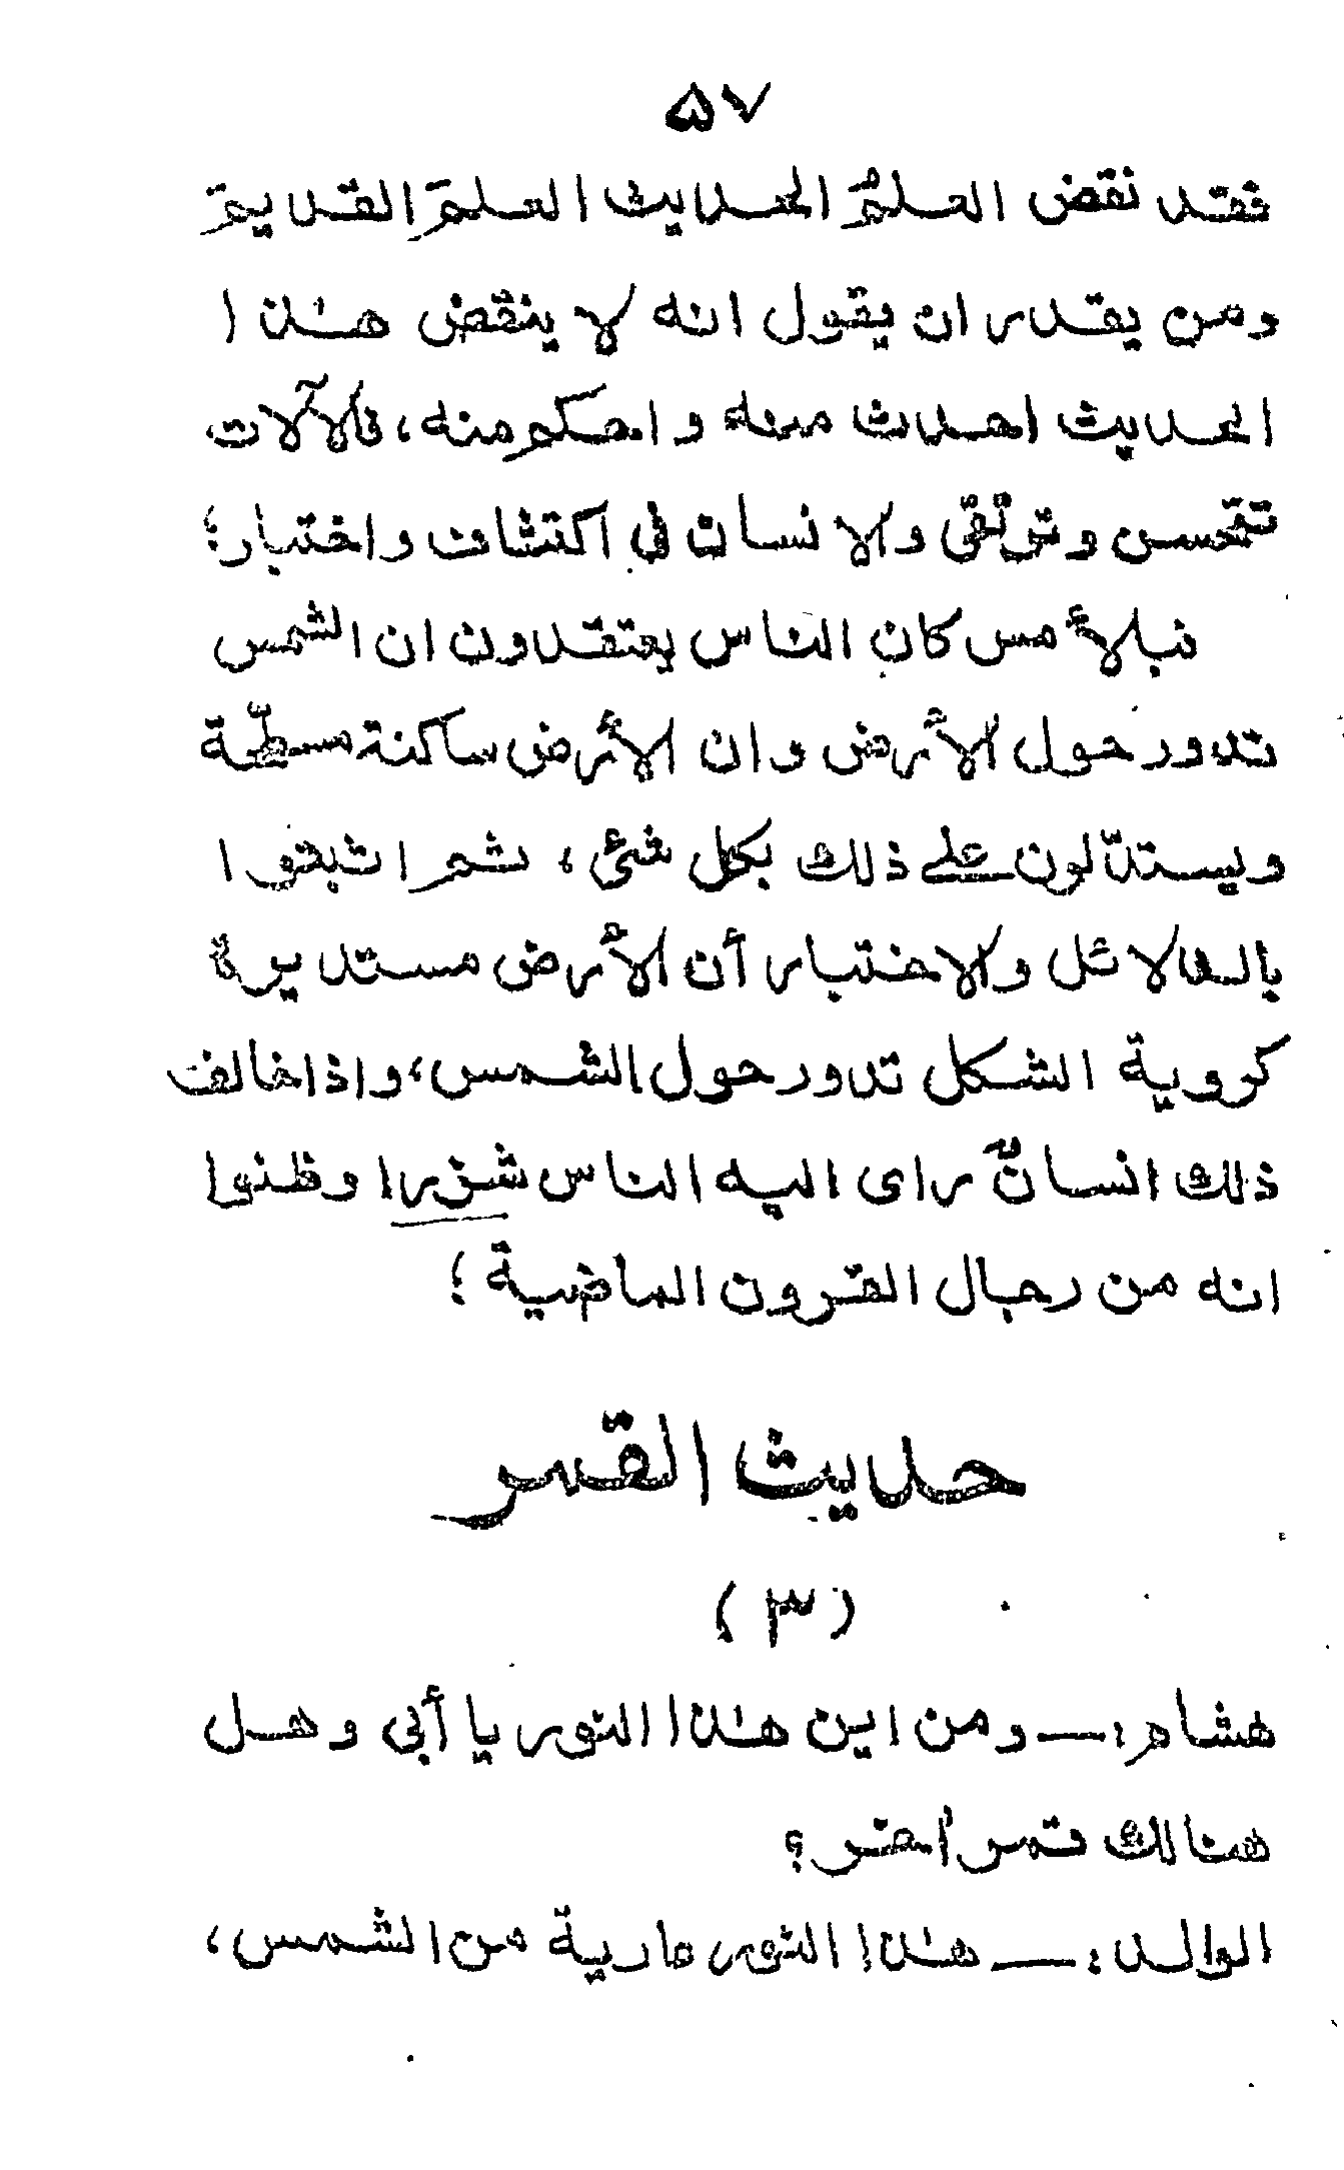 ۵۷
فقد نقض العلمُ الحديث العلمَ القديمَ
ومن يقدر ان يقول انه لا ينقض هذا
الحديث احدث منه واحكم منه، فالآلات
تتحسن وترتقي والانسان في اكتشاف واختبار؛
فبالأمس كان الناس يعتقدون ان الشمس
تدور حول الأرض وان الأرض ساكنة مسطّحة
ويستدلّون على ذلك بكل شئ، ثم اثبتوا
بالدلائل والاختبار أن الأرض مستديرة
كروية الشكل تدور حول الشمس، واذا خالف
ذلك انسانٌ راى اليه الناس شزرا وظنوا
انه من رجال القرون الماضية؛
حديث القمر
(٣)
هشام :— ومن اين هذا النور يا أبي وهل
هنالك قمر اخر؟
الوالد :— هذا النور عارية من الشمس،